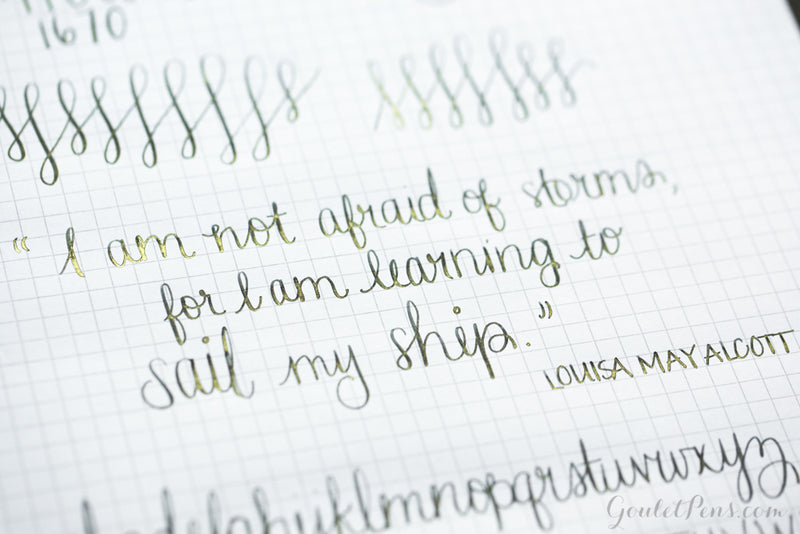 1670
“I am not afraid of storms,
for I am learning to
sail my ship.”
LOUISA MAY ALCOTT
defghijklmnopqrstuvwxyz
GouletPens.com